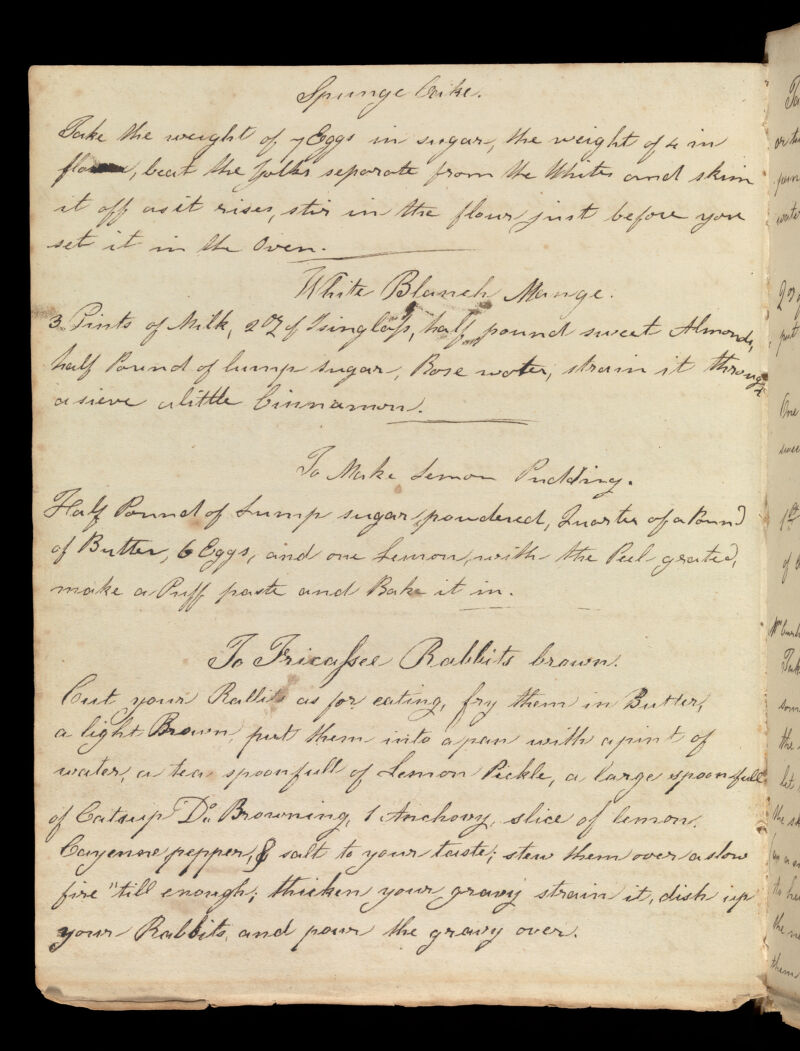 Spunge Cake.
Take the weight of 7 Eggs in sugar, the weight of 4 in
flour, beat the Yolks separate from the Whites and skim
it off as it rises, stir in the flour just before you
set it in the Oven.
White Blanch Mange.
3 Pints of Milk, 2 oz of Isinglass, half pound sweet Almonds,
half Pound of lump sugar, Rose water, strain it through
a sieve a little Cinnamon.
To Make Lemon Pudding.
Half Pound of Lump sugar powdered, Quarter of a Pound
of Butter, 6 Eggs, and one Lemon, with the Peel grated,
make a Puff paste and Bake it in.
To Fricassee Rabbits brown.
Cut your Rabbits as for eating, fry them in Butter,
a light Brown, put them into a pan with a pint of
water, a tea spoonfull of Lemon Pickle, a large spoonfull
of Catsup Do. Browning, 1 Anchovy, slice of lemon.
Cayenne pepper, & salt to your taste; stew them over a slow
fire "till enough; thicken your gravy strain it, dish up
your Rabbits, and pour the gravy over.